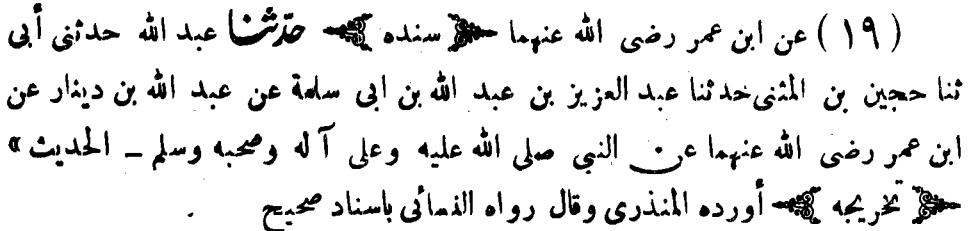 ( ١٩ ) عن ابن عمر رضى الله عنهما ﴿ سنده ﴾ حدّثنا عبد الله حدثنى أبى
ثنا حجين بن المثنى حدثنا عبد العزيز بن عبد الله بن ابى سلمة عن عبد الله بن دينار عن
ابن عمر رضى الله عنهما عن النبي صلى الله عليه وعلى آله وصحبه وسلم ــ الحديث »
﴿ تخريجه ﴾ أورده المنذرى وقال رواه النسائى باسناد صحيح .